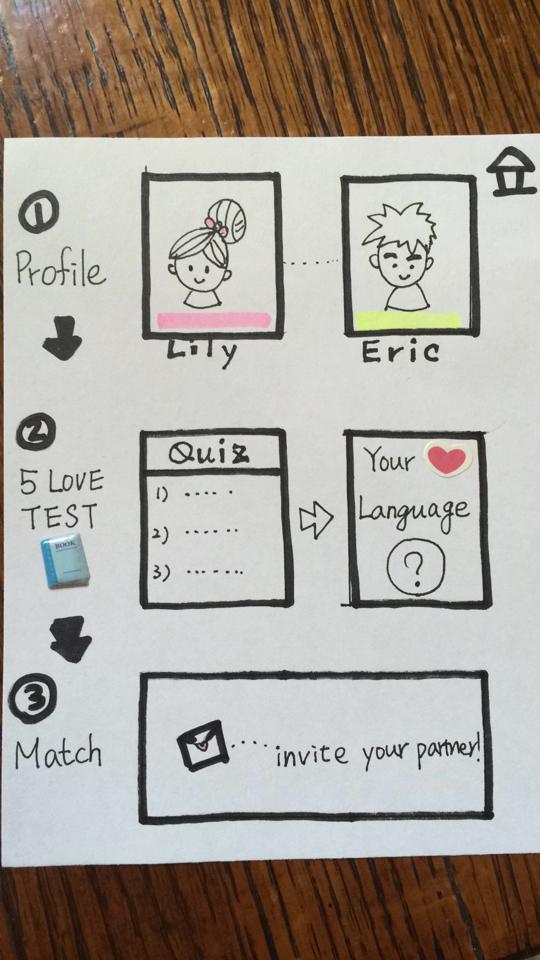 1
Profile
Lily
Eric
2
5 LOVE
TEST
BOOK
Quiz
1) ..... .
2) ...... ..
3) ..... ...
Your
Language
?
3
Match
..... invite your partner!